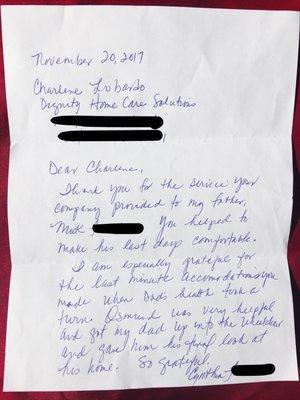 November 20, 2017
Charlene Lobardo
Dignity Home Care Solutions
Dear Charlene,
Thank you for the service your
company provided to my father,
Mick You helped to
make his last days comfortable.
I am especially grateful for
the last minute accomodations you
made when Dad's health took a
turn. Osmund was very helpful
and got my dad up into the wheelchair
and gave him his final look at
his home. So grateful.
Cynthia